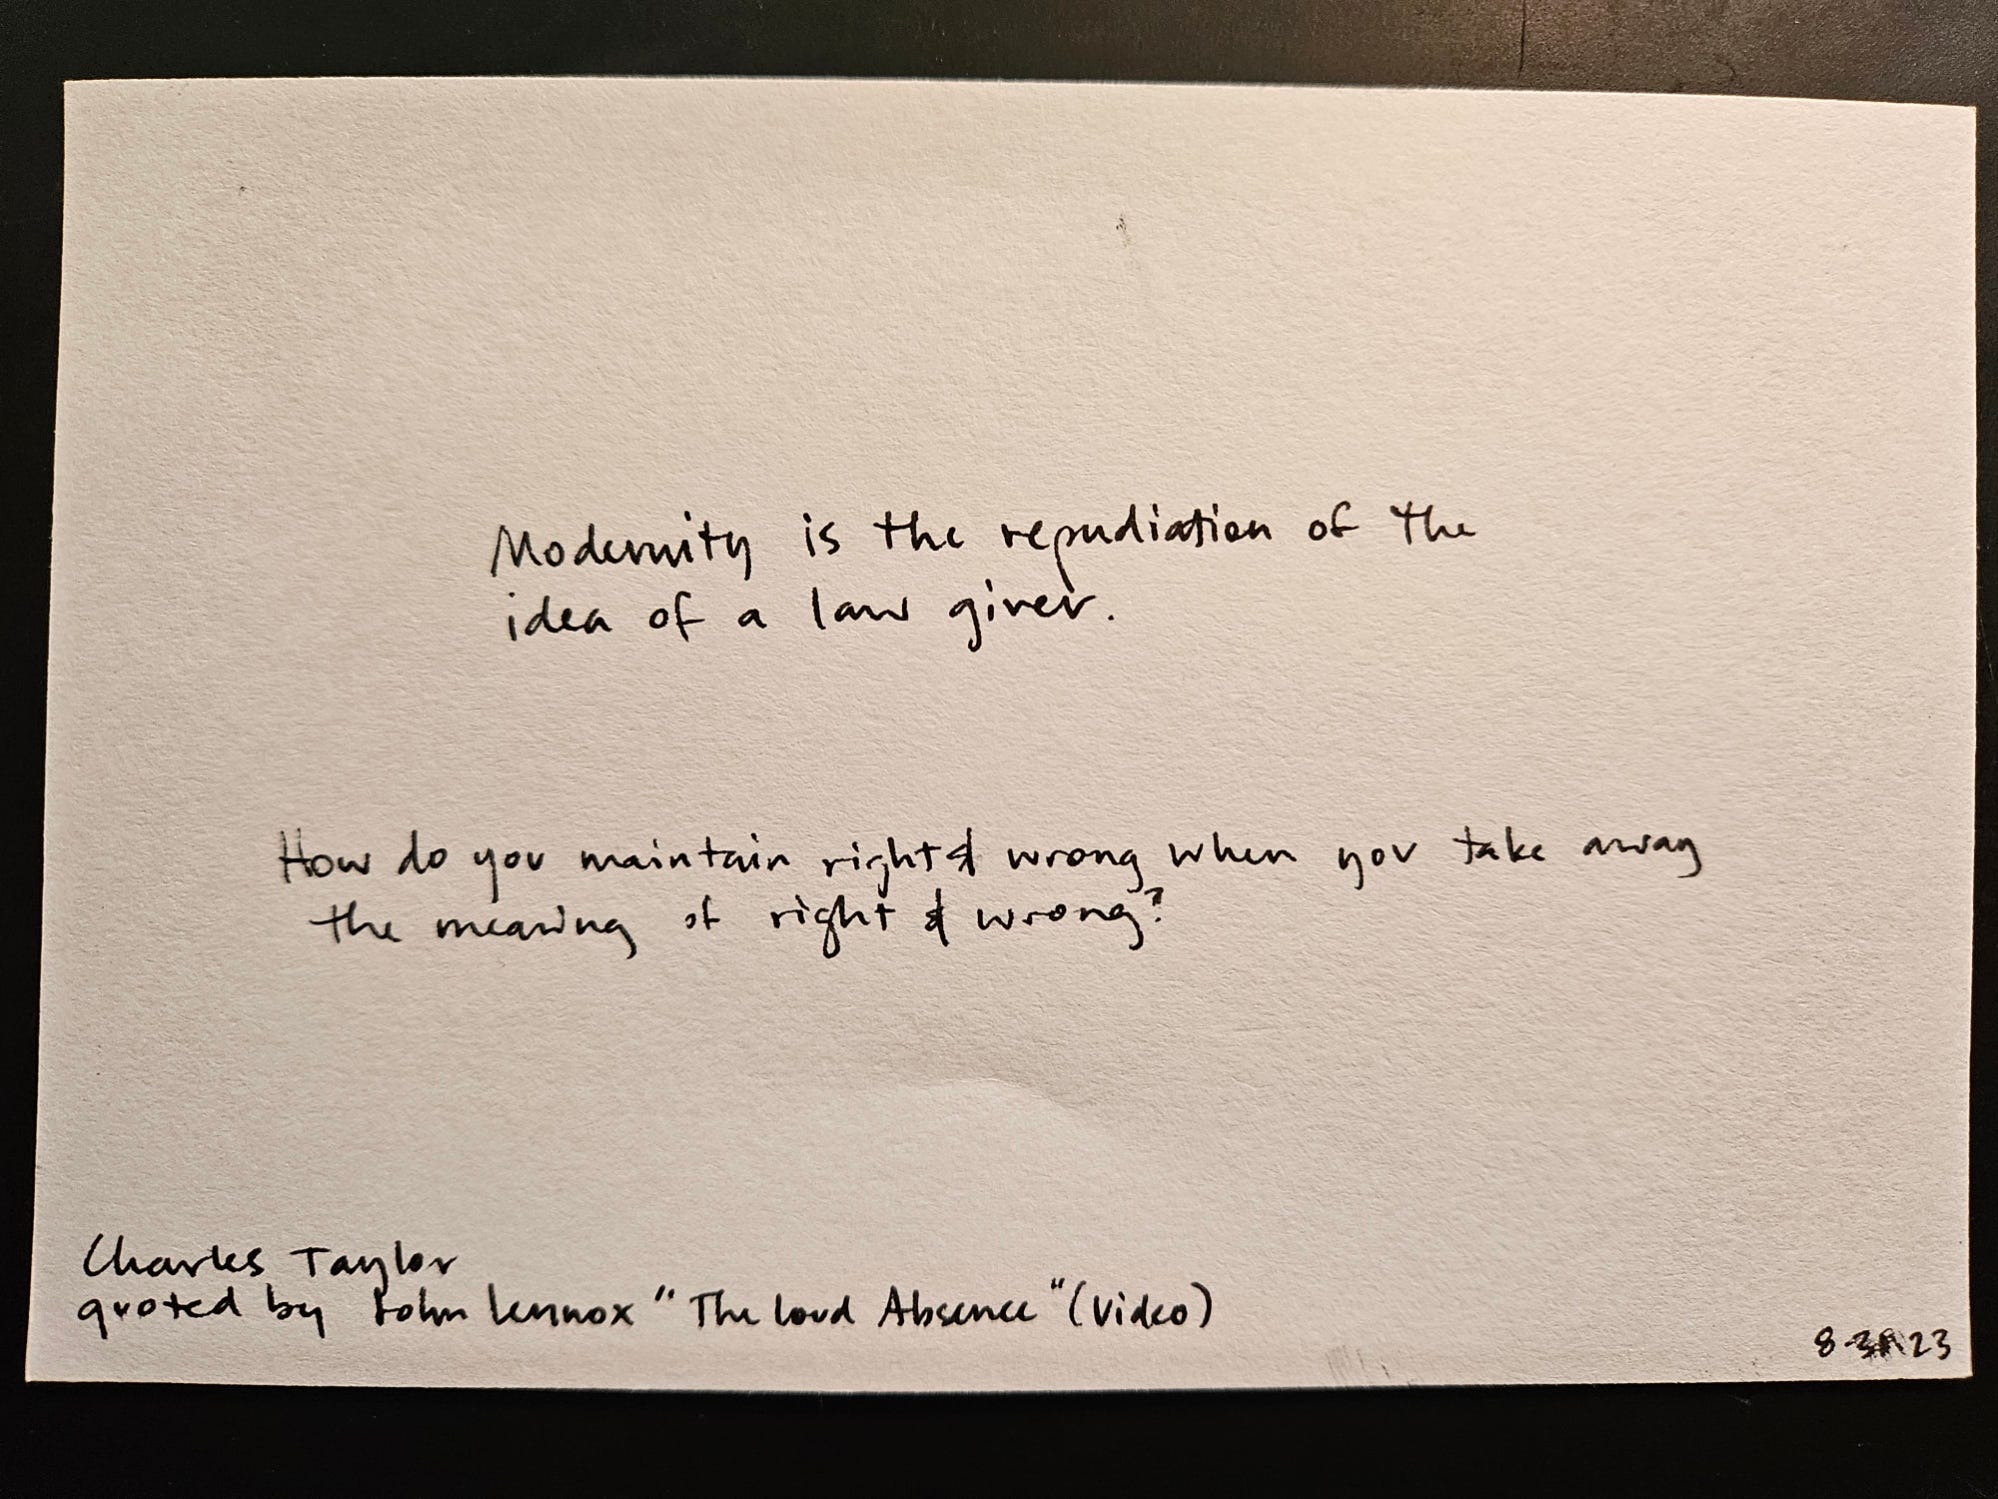 Modernity is the repudiation of the
idea of a law giver.
How do you maintain right & wrong when you take away
the meaning of right & wrong?
Charles Taylor
quoted by John Lennox "The Loud Absence" (Video)
23